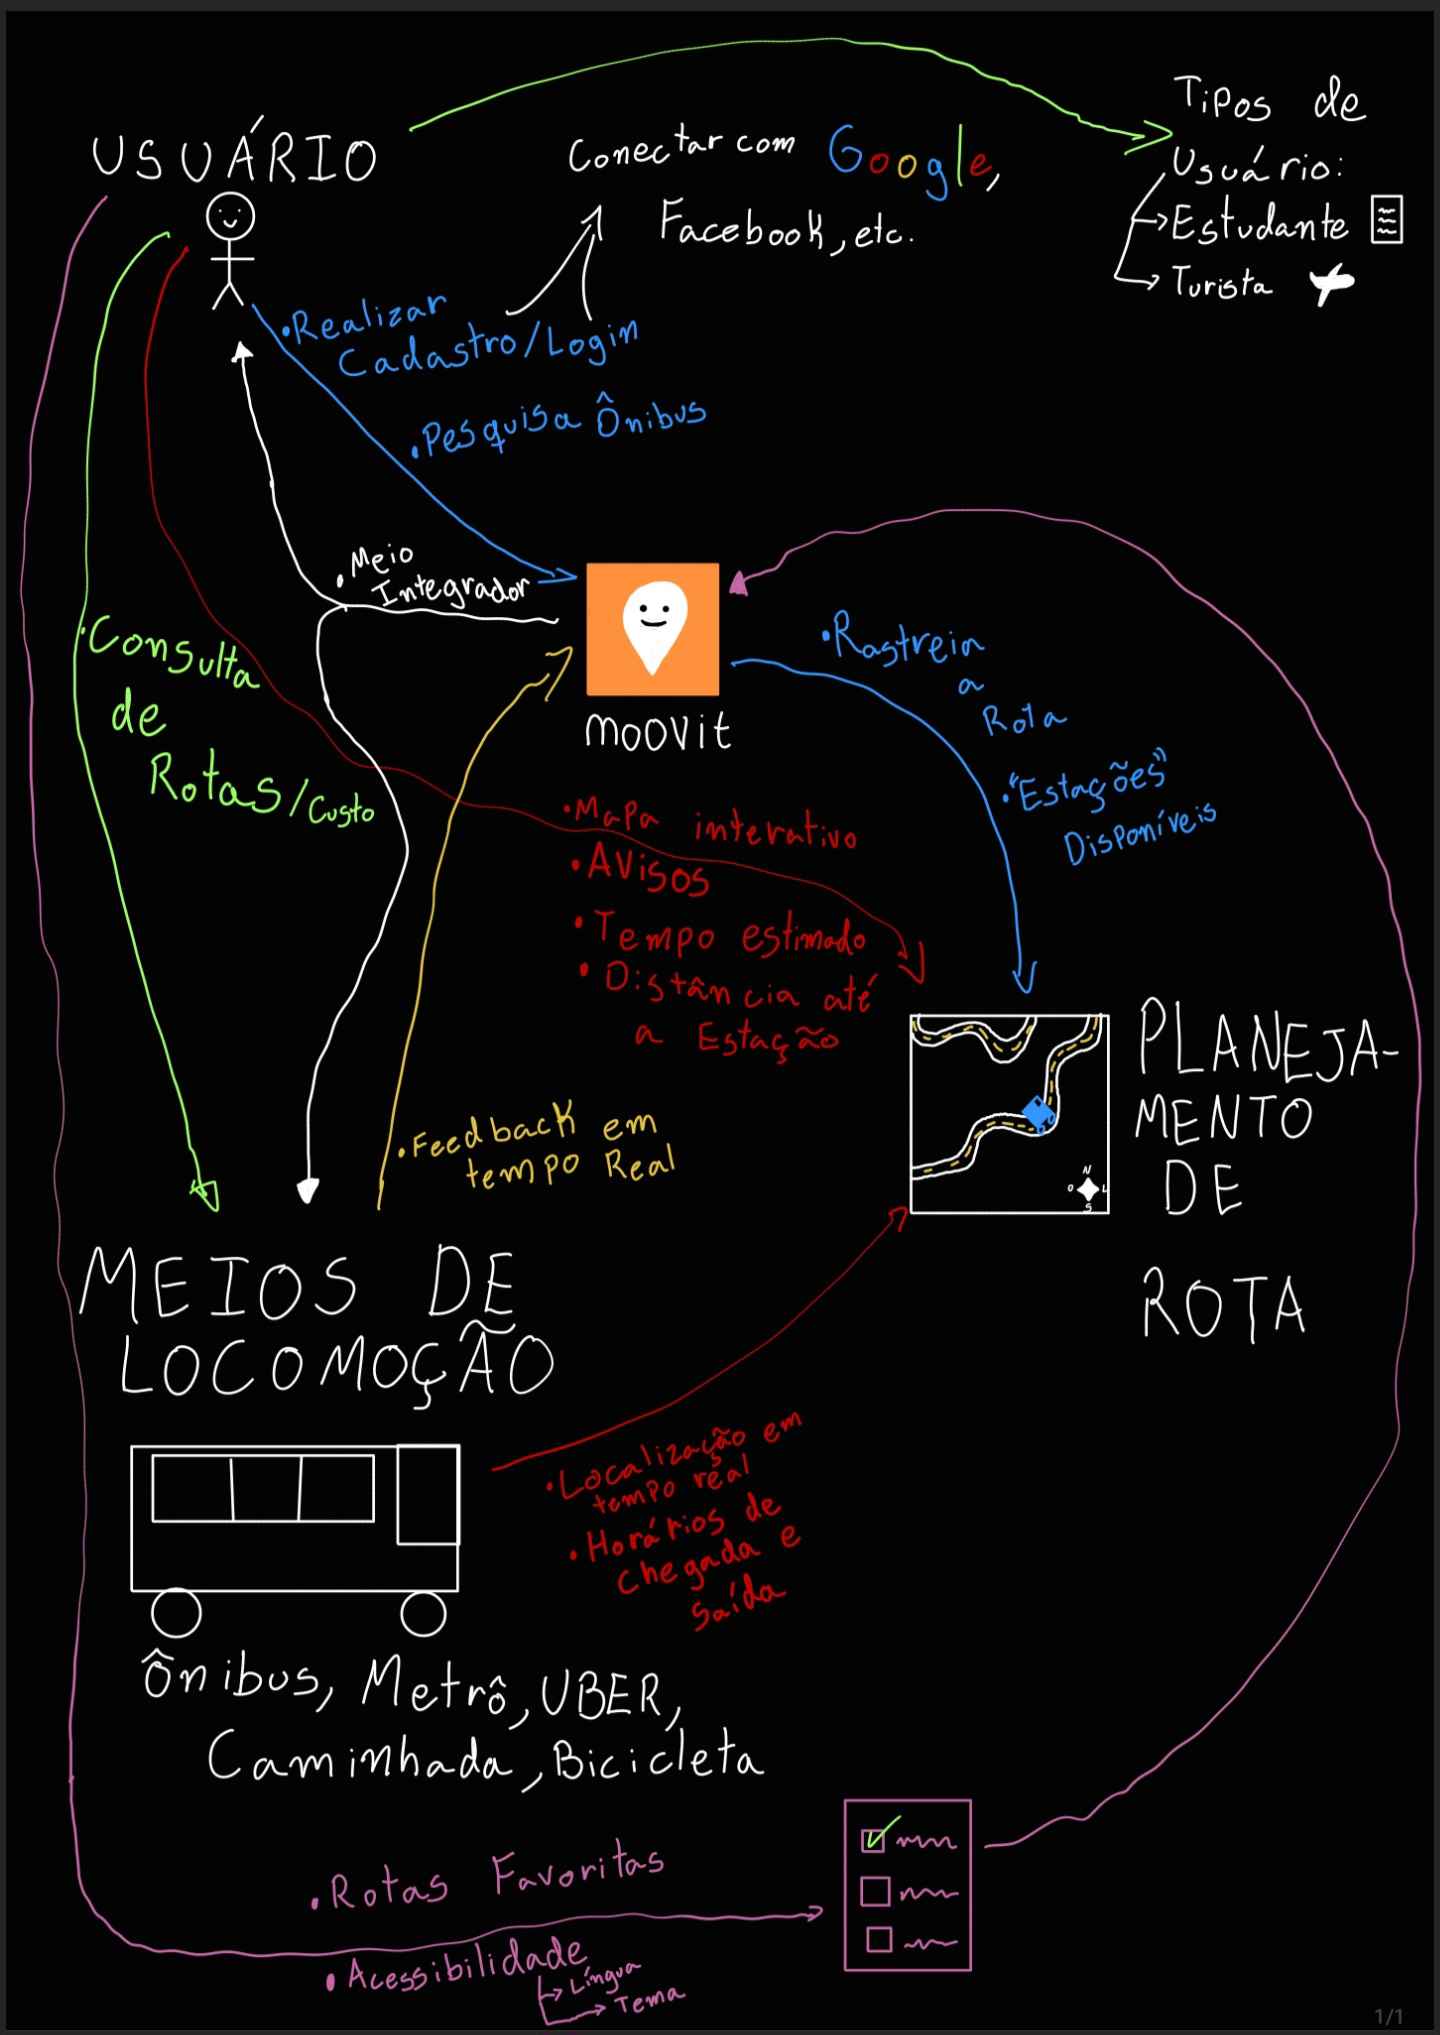 USUÁRIO
Conectar com Google,
Facebook, etc.
Tipos de
Usuário:
Estudante
Turista
•Realizar
Cadastro/Login
•Pesquisa Ônibus
•Meio
Integrador
moovit
•Rastreia
a
Rota
•"Estações"
Disponíveis
•Consulta
de
Rotas/Custo
•Mapa interativo
•Avisos
•Tempo estimado
•Distância até
a Estação
•Feedback em
tempo Real
PLANEJA-
MENTO
DE
ROTA
N
O L
S
MEIOS DE
LOCOMOÇÃO
•Localização em
tempo real
•Horários de
chegada e
saída
Ônibus, Metrô, UBER,
Caminhada, Bicicleta
•Rotas Favoritas
•Acessibilidade
Língua
Tema
1/1